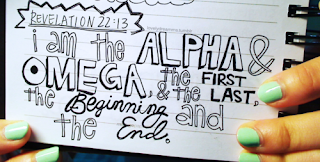 REVELATION 22:13
i am the ALPHA &
OMEGA, & the FIRST
the LAST,
the Beginning and
the End.